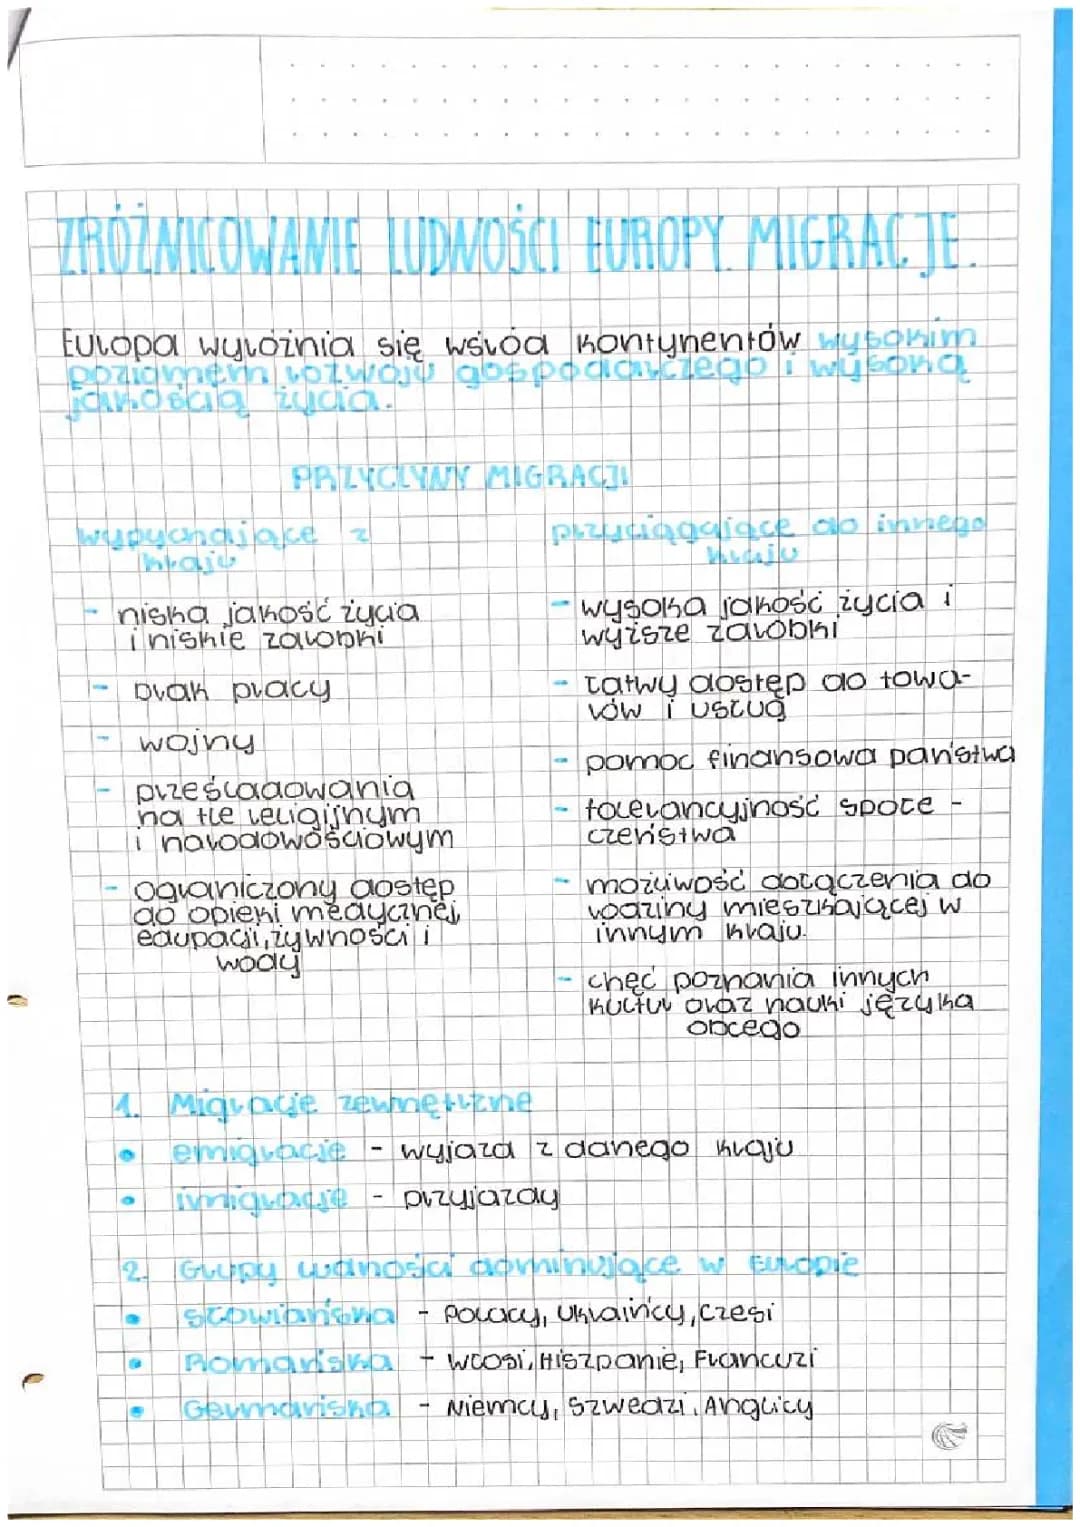 ZRÓŻNICOWANIE LUDNOŚCI EUROPY. MIGRACJE.
Europa wyróżnia się wśród kontynentów wysokim
poziomem rozwoju gospodarczego i wysoką
jakością życia.
PRZYCZYNY MIGRACJI
wypychające z
kraju
- niska jakość życia
i niskie zarobki
- brak pracy
- wojny
- prześladowania
na tle religijnym
i narodowościowym
- ograniczony dostęp
do opieki medycznej,
edupacji, żywności i
wody
przyciągające do innego
kraju
- wysoka jakość życia i
wyższe zarobki
- łatwy dostęp do towa-
rów i usług
- pomoc finansowa państwa
- tolerancyjność społe-
czeństwa
- możliwość dołączenia do
rodziny mieszkającej w
innym kraju.
- chęć poznania innych
kultur oraz nauki języka
obcego
1. Migracje zewnętrzne
• emigracje - wyjazd z danego kraju
• imigracje - przyjazdy
2. Grupy ludności dominujące w Europie
• słowiańska - Polacy, Ukraińcy, Czesi
• Romańska - Włosi, Hiszpanie, Francuzi
• Germańska - Niemcy, Szwedzi, Anglicy